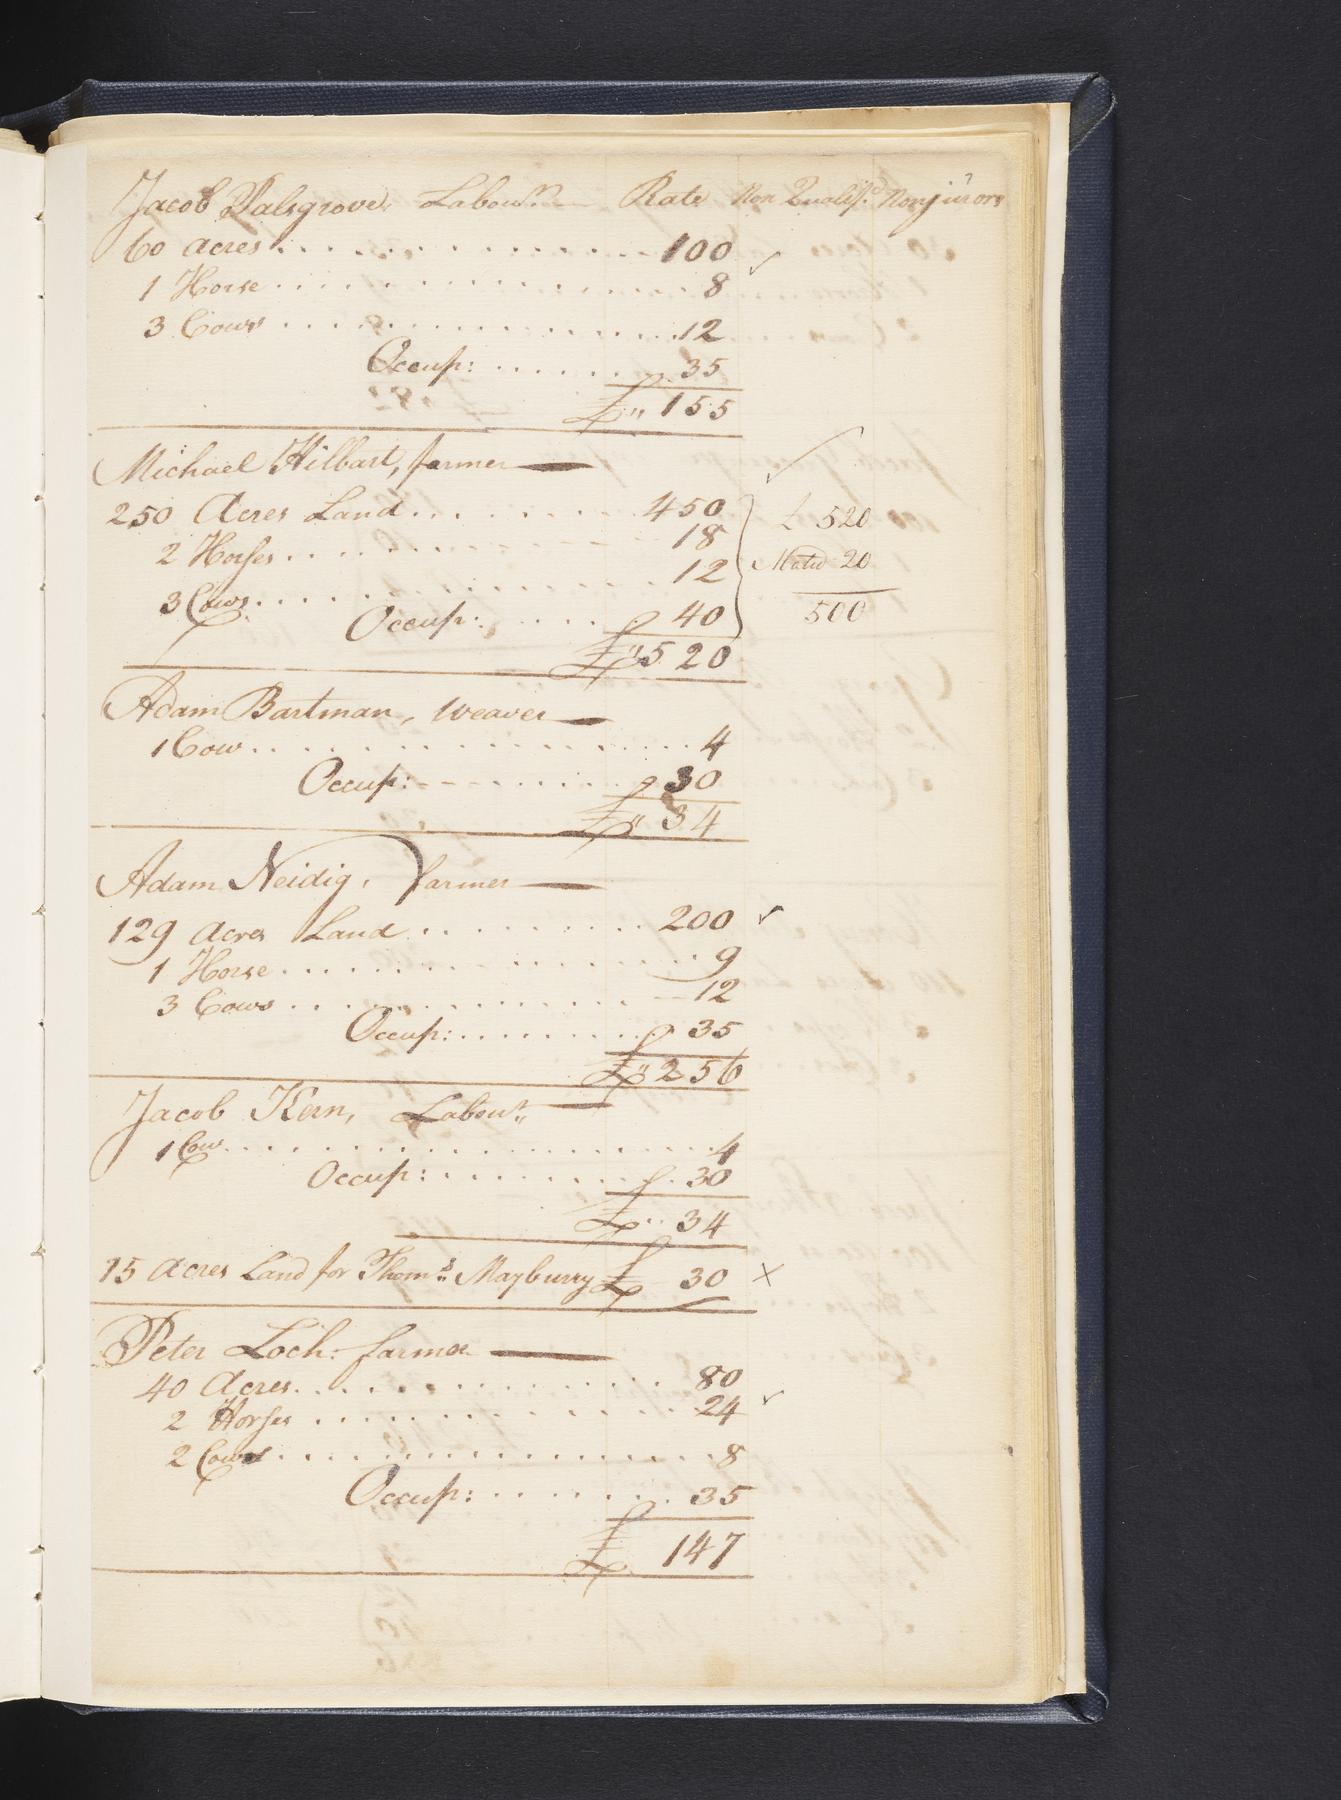 Jacob Palsgrove Labour.r Rate Non Qualif.d Nonjurors
60 acres 100 ✓
1 Horse 8
3 Cows 12
Occup: 35
£" 155
Michael Hilbart, farmer ✓
250 Acres Land 450 £ 520
2 Horses 18
3 Cows 12 20
Occup: 40 500
£" 520
Adam Bartman, Weaver
1 Cow 4
Occup: 30
£" 34
Adam Neidig, Farmer
129 Acres Land 200 ✓
1 Horse 9
3 Cows 12
Occup: 35
£" 256
Jacob Kern, Labour
1 Cow 4
Occup: 30
£" 34
15 Acres Land for Thom.s Mayburry £ 30 X
Peter Loch: farmer
40 Acres 80
2 Horses 24 ✓
2 Cows 8
Occup: 35
£ 147